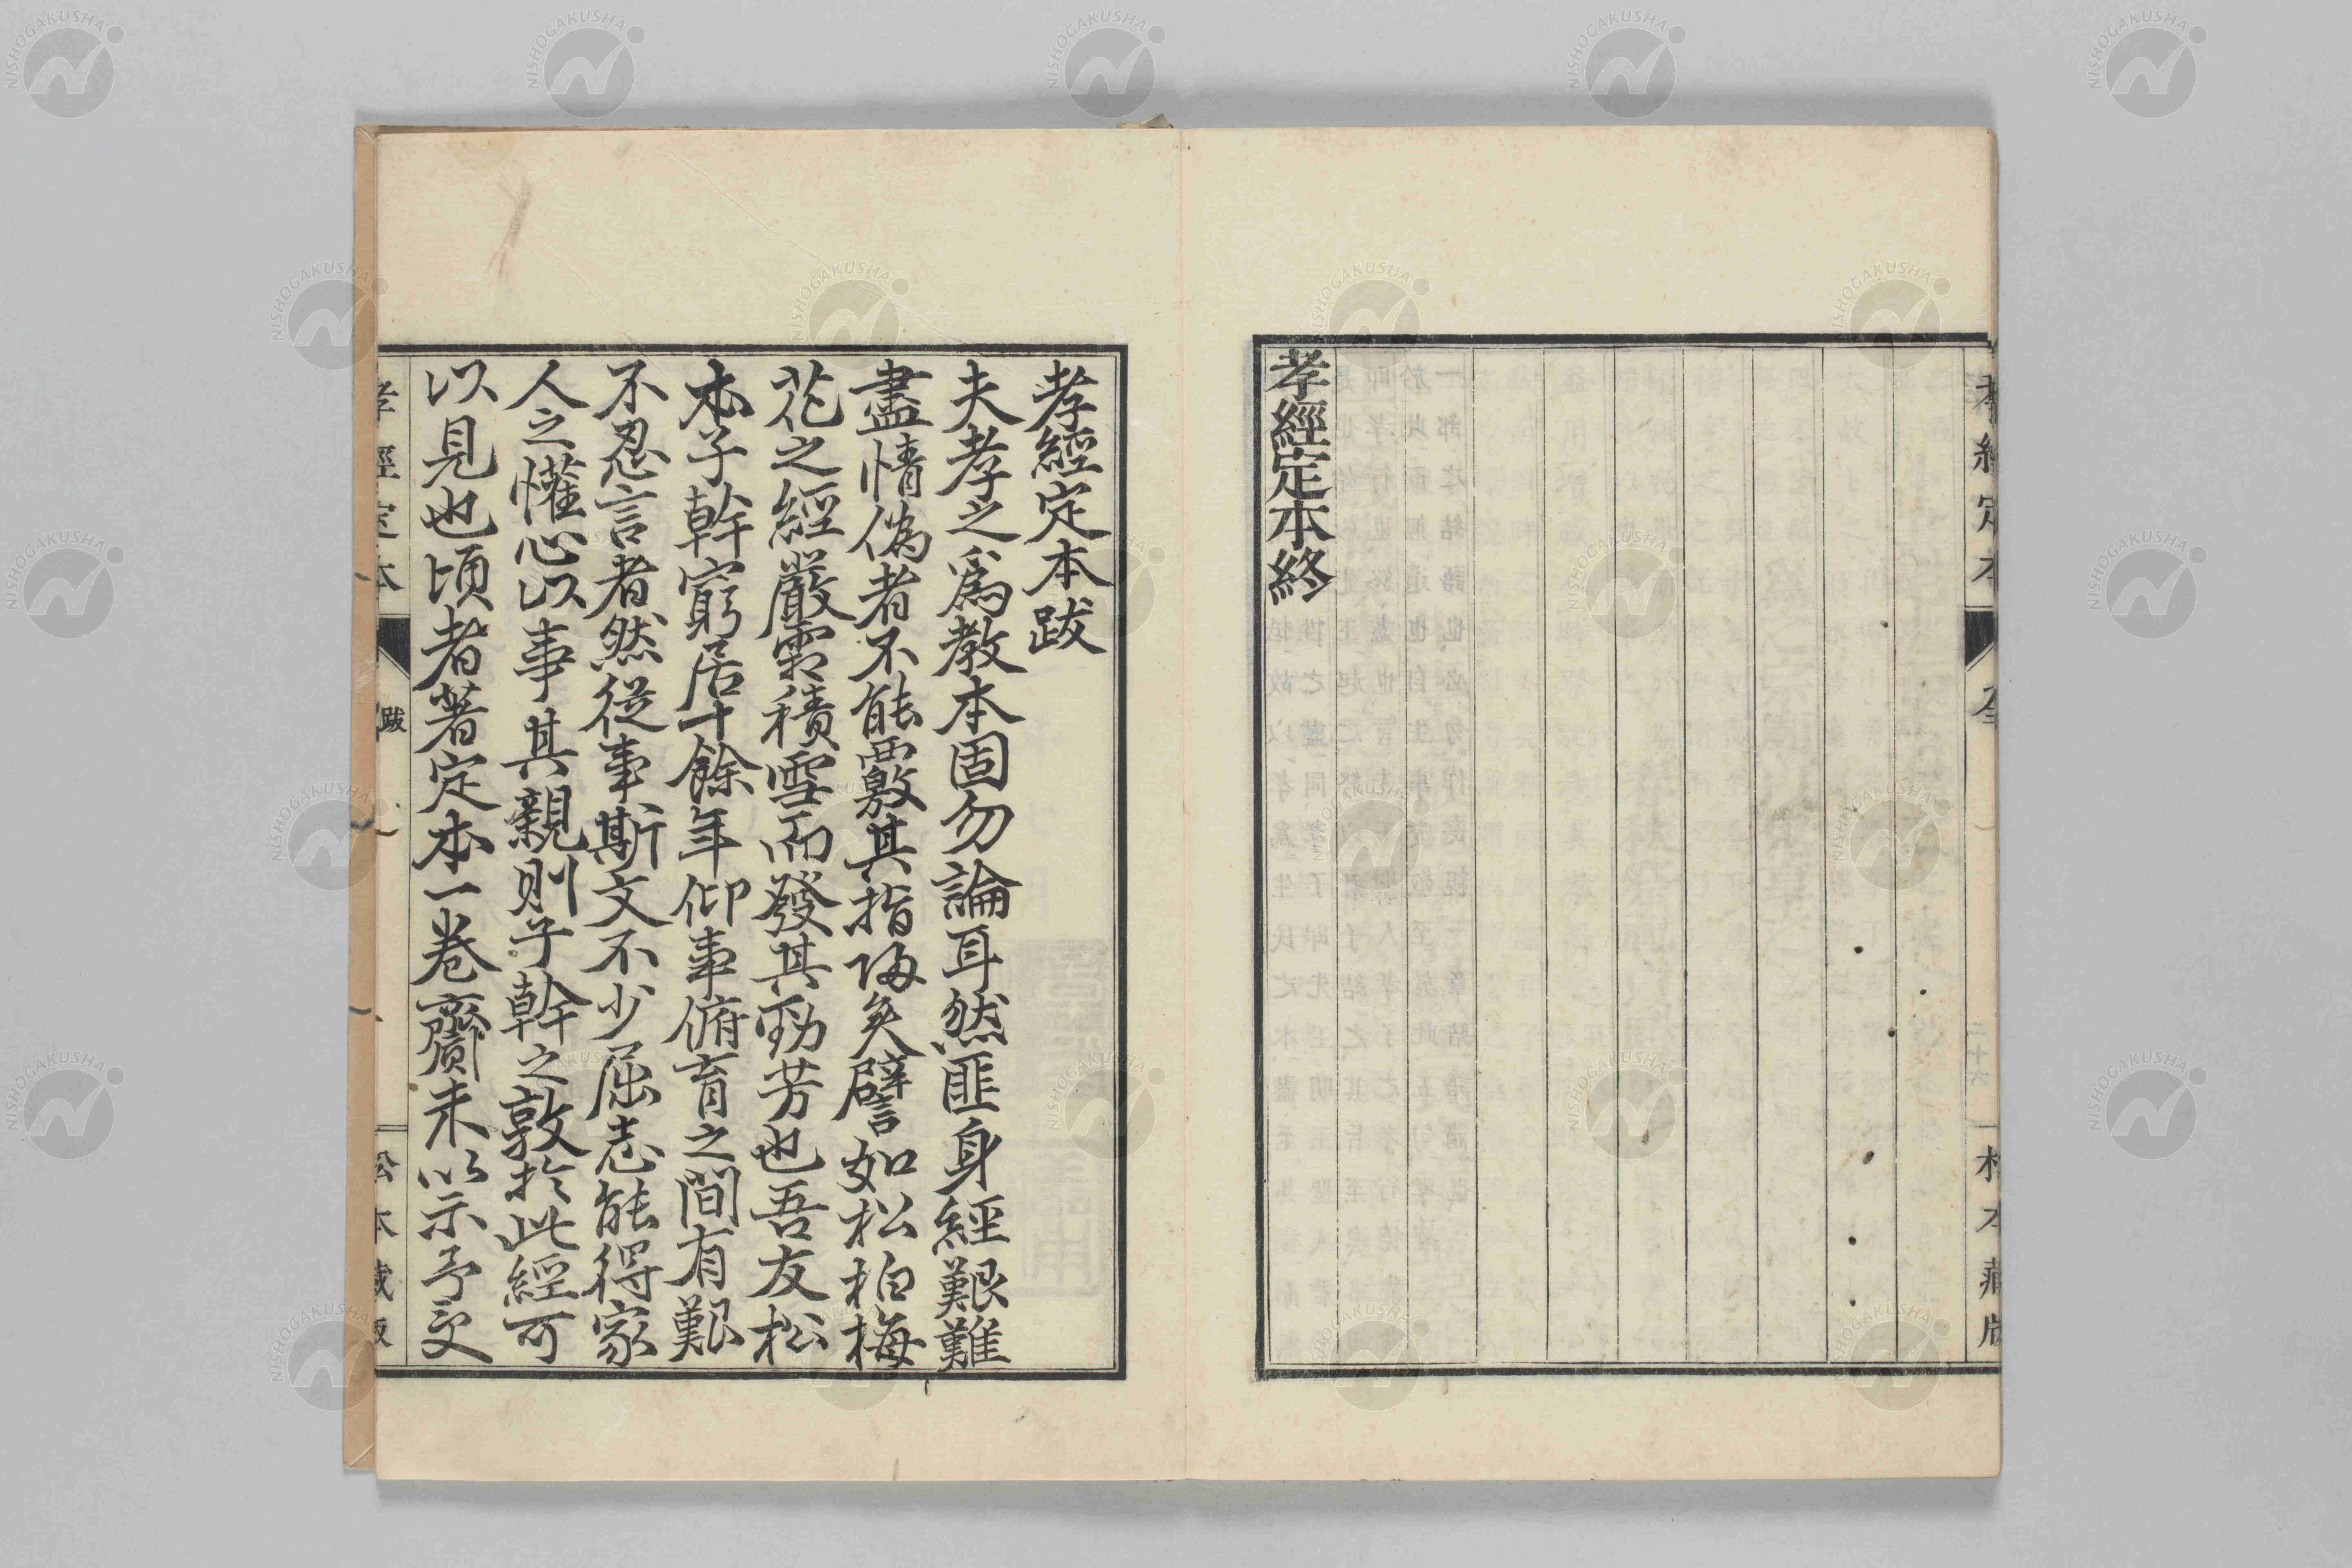 孝經定本 全
二十六
松本藏版
孝經定本終
孝經定本跋
夫孝之爲教本固勿論耳然匪身經艱難
盡情僞者不能覈其指歸矣譬如松柏梅
花之經嚴霜積雪而發其勁芳也吾友松
本子幹窮居十餘年仰事俯育之間有艱
不忍言者然從事斯文不少屈志能得家
人之懽心以事其親則子幹之敦於此經可
以見也頃者著定本一卷齎来以示予受
孝經定本 跋
松本藏版